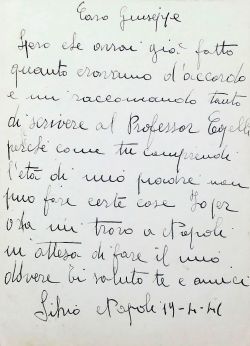 Caro Giuseppe
Spero che avrai già fatto
quanto eravamo d'accordo
e mi raccomando tanto
di scrivere al Professor
perché come tu comprendi
l'età di mio padre non
può fare certe cose Io per
ora mi trovo a Napoli
in attesa di fare il mio
dovere ti saluto te e amici
Silvio Napoli 19-4-41